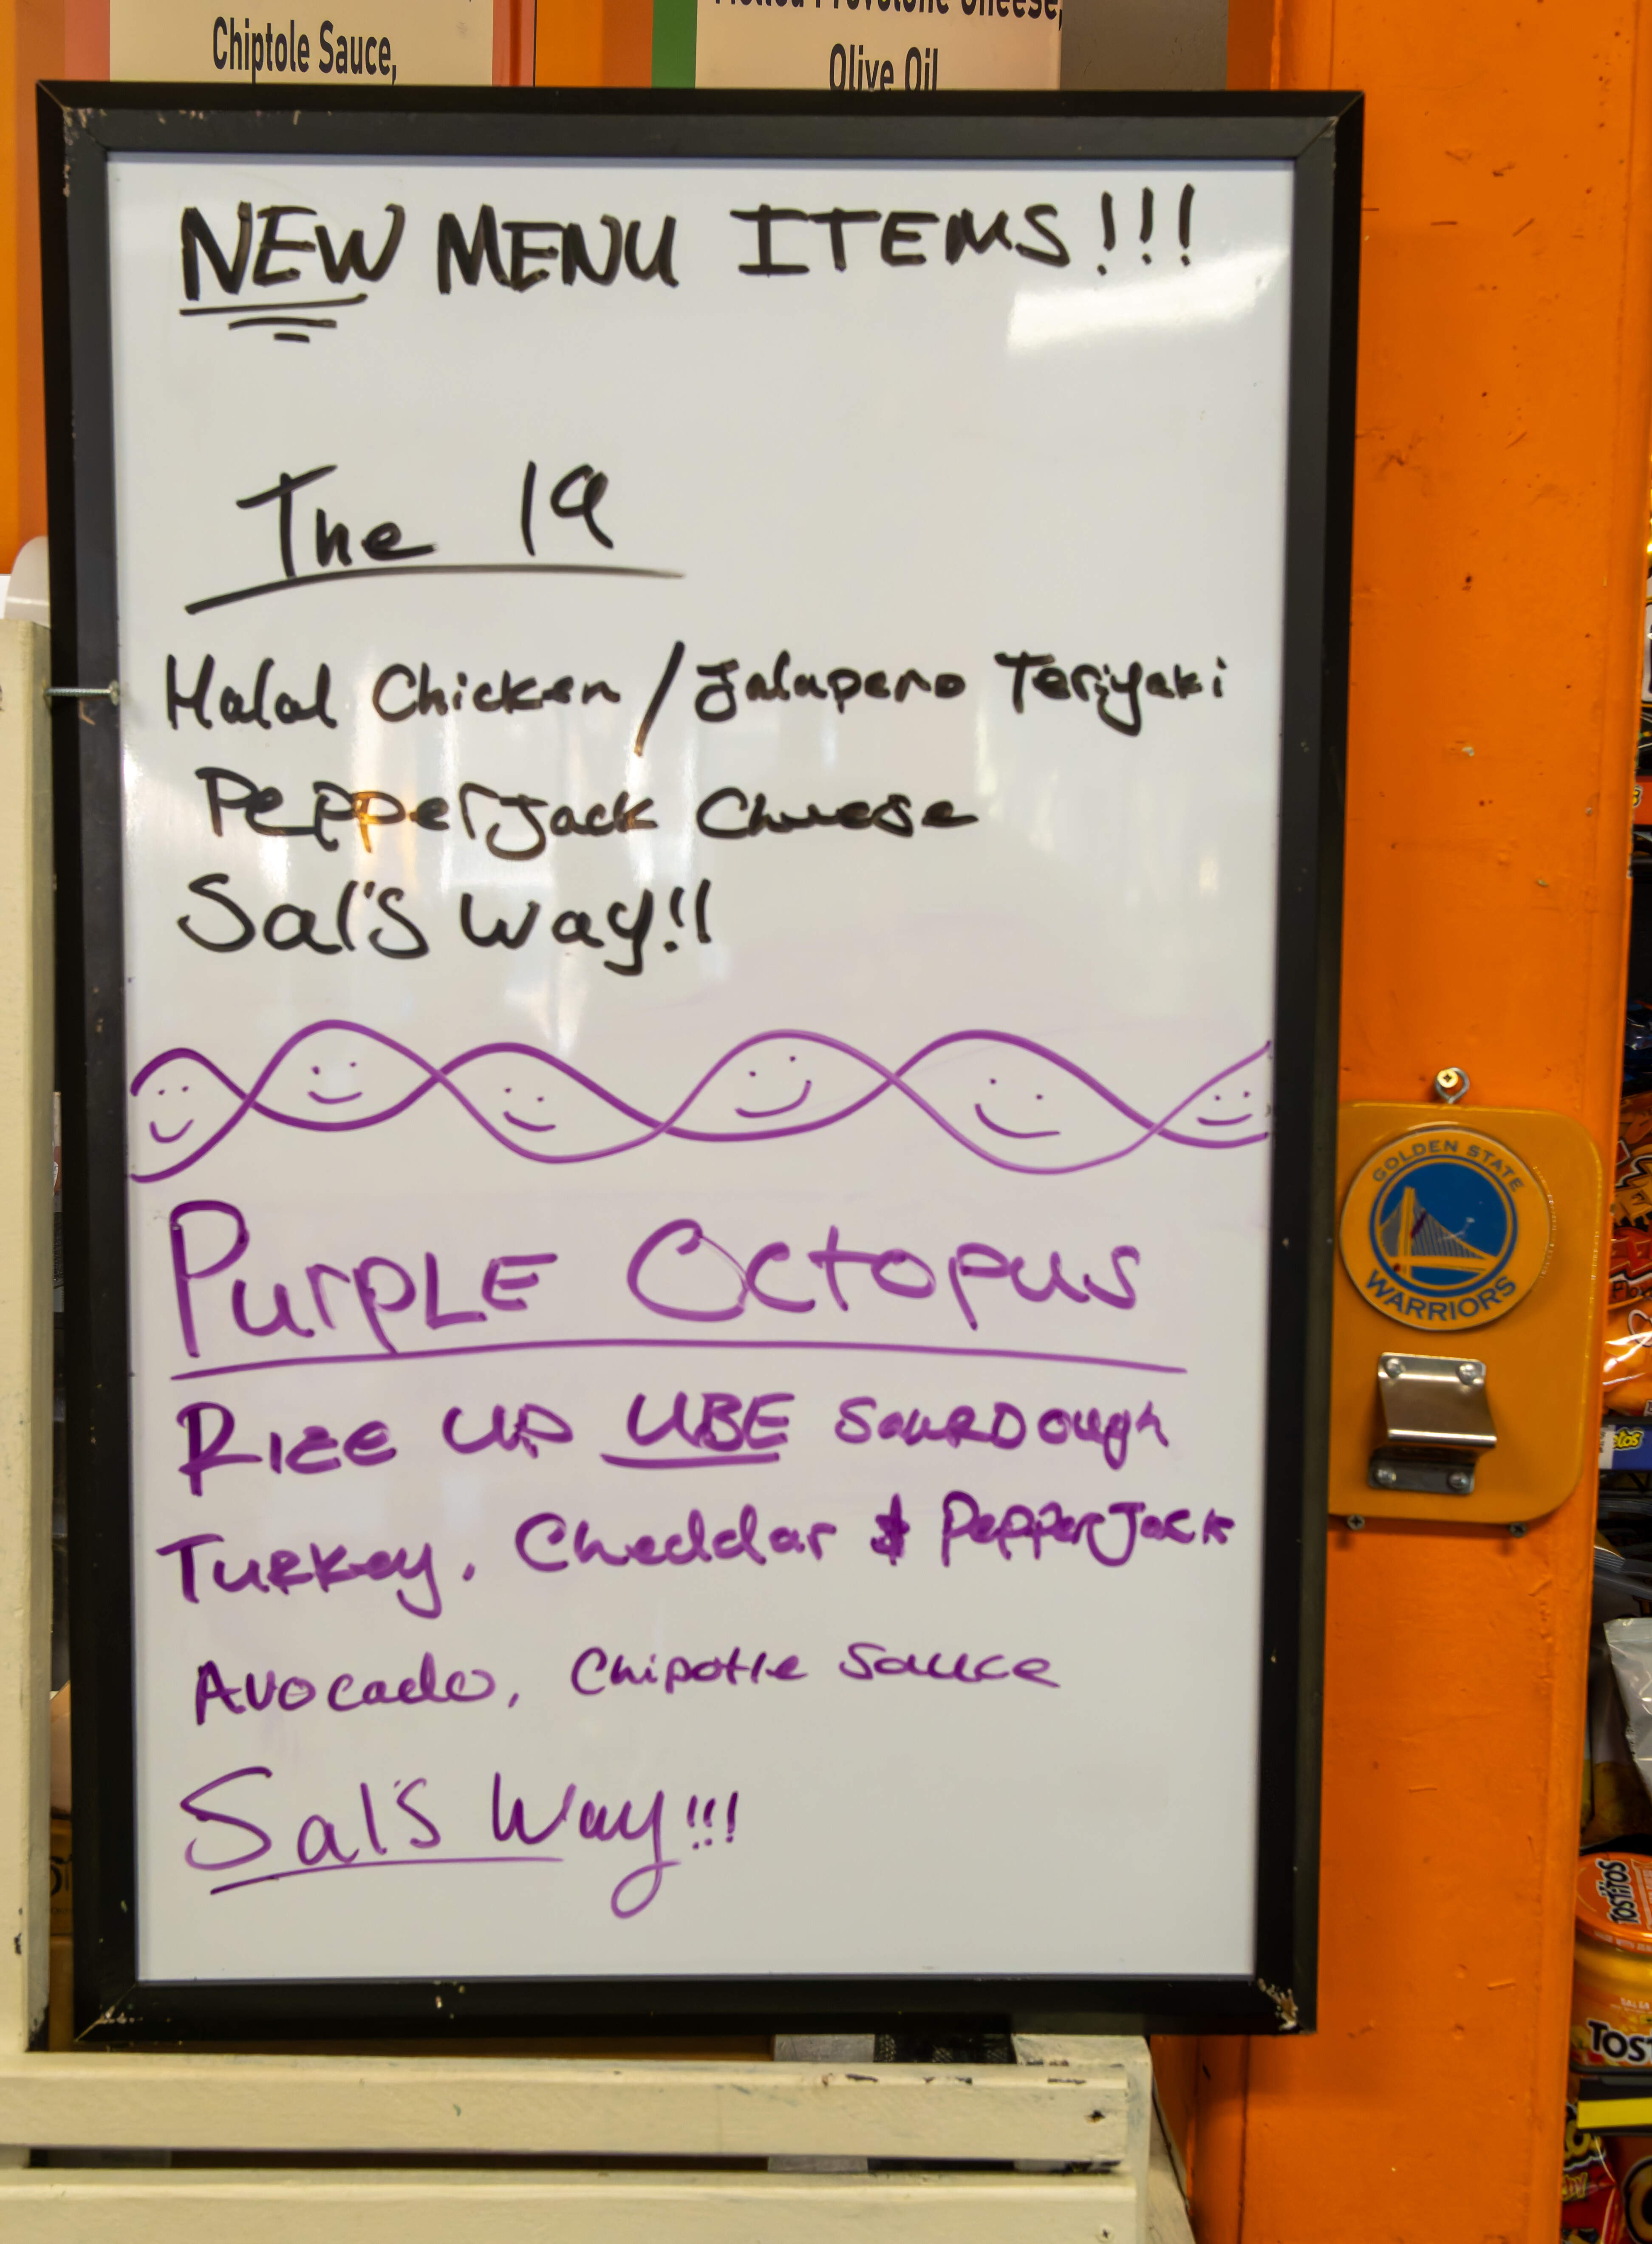 Chiptole Sauce,
Melted Provolone Cheese,
Olive Oil
NEW MENU ITEMS!!!
The 19
Halal Chicken / Jalapeno Teriyaki
PepperJack Cheese
Sal's Way!!
PurpLE Octopus
RIZE UP UBE SOURDough
Turkey, Cheddar & PepperJack
Avocado, Chipotle Sauce
Sal's Way!!!
GOLDEN STATE
WARRIORS
TOSTITOS
TOST